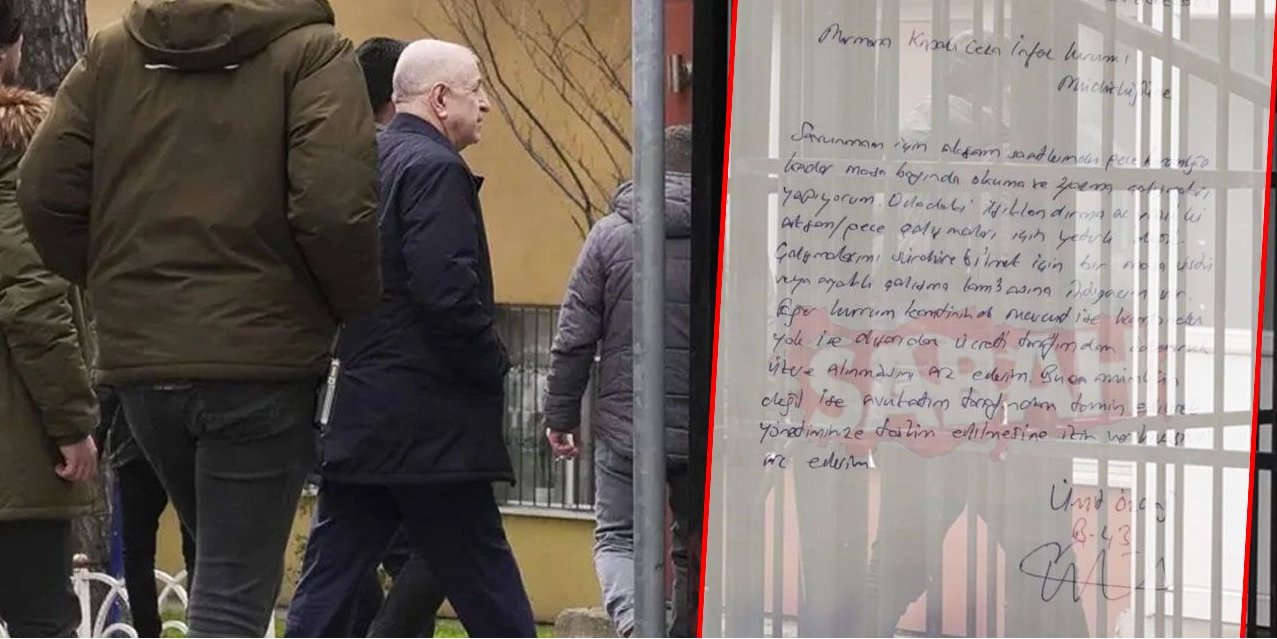 Marmara Kapalı Ceza İnfaz Kurumu
Müdürlüğüne
Savunmam için akşam saatlerinden gece
kadar masa başında okuma ve yazım
yapıyorum. Odadaki ışıklandırma
akşam/gece çalışmaları için yeterli değil.
Çalışmalarımı sürdürebilmek için bir masa üstü
veya ayaklı çalışma lambasına ihtiyacım var.
Eğer kurum kantininde mevcut ise kantinden
yok ise dışarıdan ücreti tarafımdan
üzere alınmasını arz ederim. Bu da mümkün
değil ise avukatım tarafından temin edilerek
yönetiminize teslim edilmesine izin
arz ederim
Ümit Özdağ
B-43